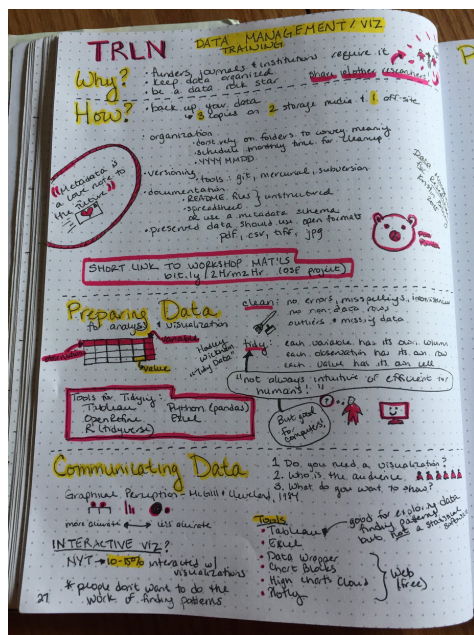 TRLN DATA MANAGEMENT / VIZ
TRAINING
Why?
· funders, journals & institutions require it
· keep data organized
· be a data rock star
share w/other researchers!
How?
· back up your data
↳ 3 copies on 2 storage media & 1 off-site
· organization
· don't rely on folders to convey meaning
· schedule monthly time for cleanup
· YYYY MMDD
· versioning
· tools: git, mercurial, subversion
· documentation
· README files } unstructured
· spreadsheet
or use a metadata schema
· preserved data should use open formats
pdf, csv, tiff, jpg
"Metadata is
a love note to
the future"
SHORT LINK TO WORKSHOP MAT'LS
bit.ly/2Hrm2Hr (OSF project)
Preparing Data
for analysis & visualization
variable
observation
value
Hadley
Wickham
"Tidy Data"
clean: no errors, misspellings, inconsistencies
no non-data rows
outliers & missing data
tidy: each variable has its own column
each observation has its own row
each value has its own cell
"not always intuitive or efficient for
humans!"
But good
for
computers!
Tools for Tidying:
Tableau Python (pandas)
OpenRefine Excel
R (tidyverse)
Communicating Data
1 Do you need a visualization?
2. Who is the audience
3. What do you want to show?
Graphical Perception - McGill & Cleveland, 1984
more accurate ↔ less accurate
INTERACTIVE VIZ?
NYT → 10-15% interacted w/
visualizations
* people don't want to do the
work of finding patterns
Tools
· Tableau
good for exploring data
finding patterns
but not a statistical
software
· Excel
· Data Wrapper
· Chart Blocks
· High Charts Cloud
· Plotly
} Web
(free)
27